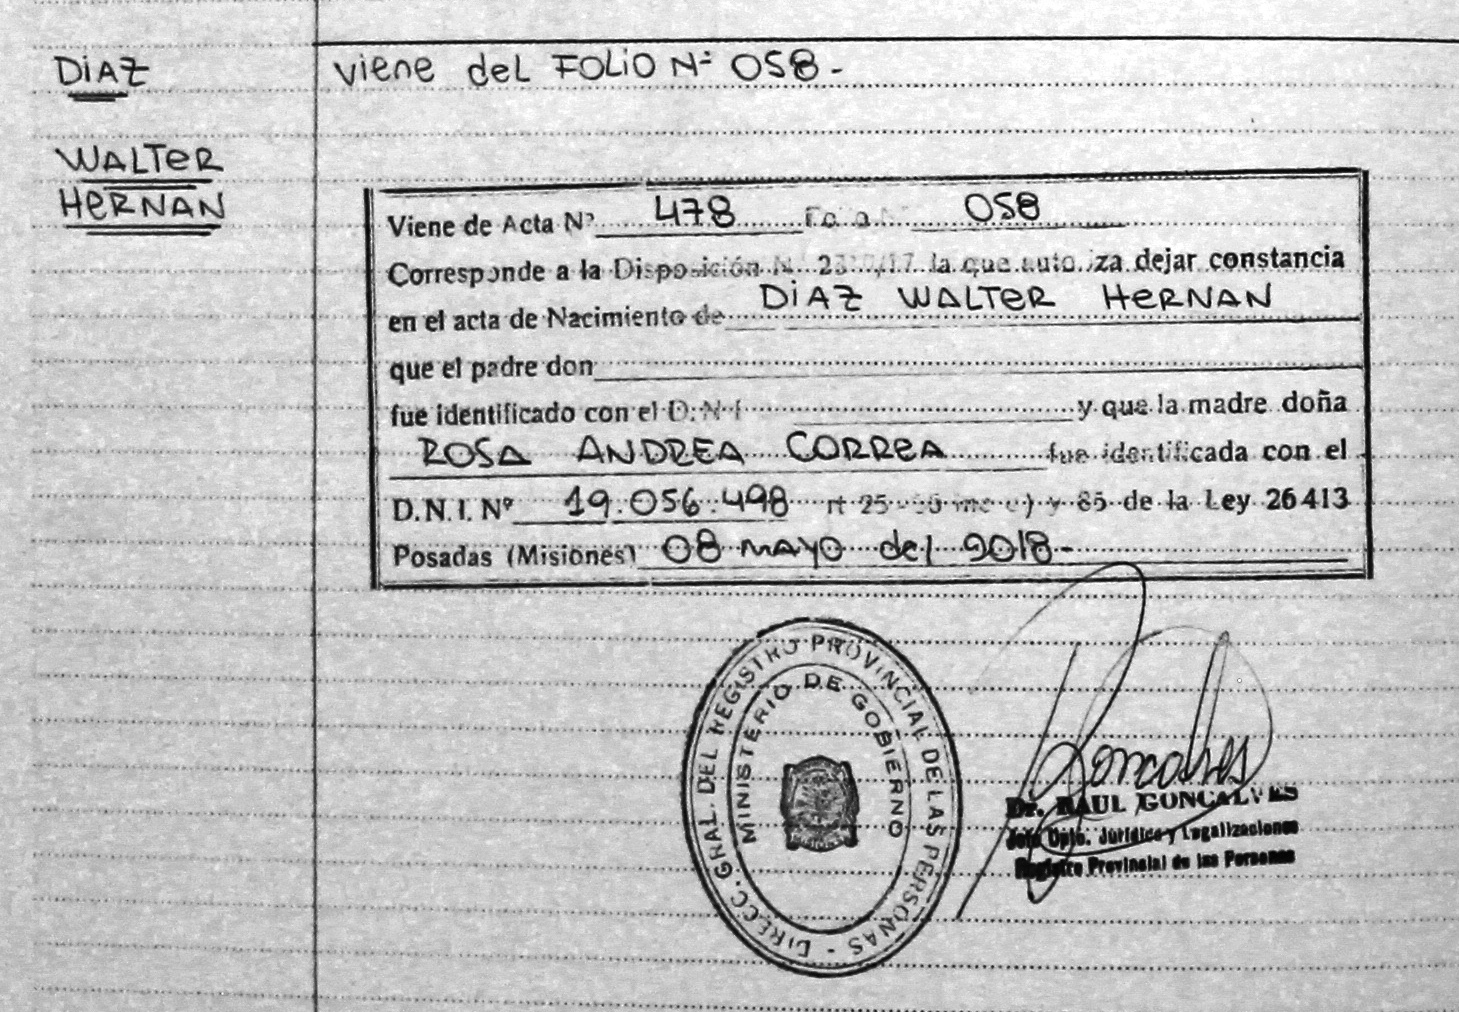 DiAZ
WALTeR
HeRNAN
viene del FOLiO Nº 058-
Viene de Acta Nº 478 Folio Nº 058
Corresponde a la Disposición Nº la que autoriza dejar constancia
en el acta de Nacimiento de DiAZ WALTeR HeRNAN
que el padre don
fue identificado con el D.N.I y que la madre doña
ROSA ANDREA CORReA fue identificada con el
D.N.I. Nº 19.056.498 y 85 de la Ley 26413
Posadas (Misiones) 08 MAYO del 2018-
DIRECC. GRAL. DEL REGISTRO PROVINCIAL DE LAS PERSONAS -
MINISTERIO DE GOBIERNO
Goncalves
Dr. RAUL GONCALVES
Jefe Dpto. Jurídico y Legalizaciones
Registro Provincial de las Personas